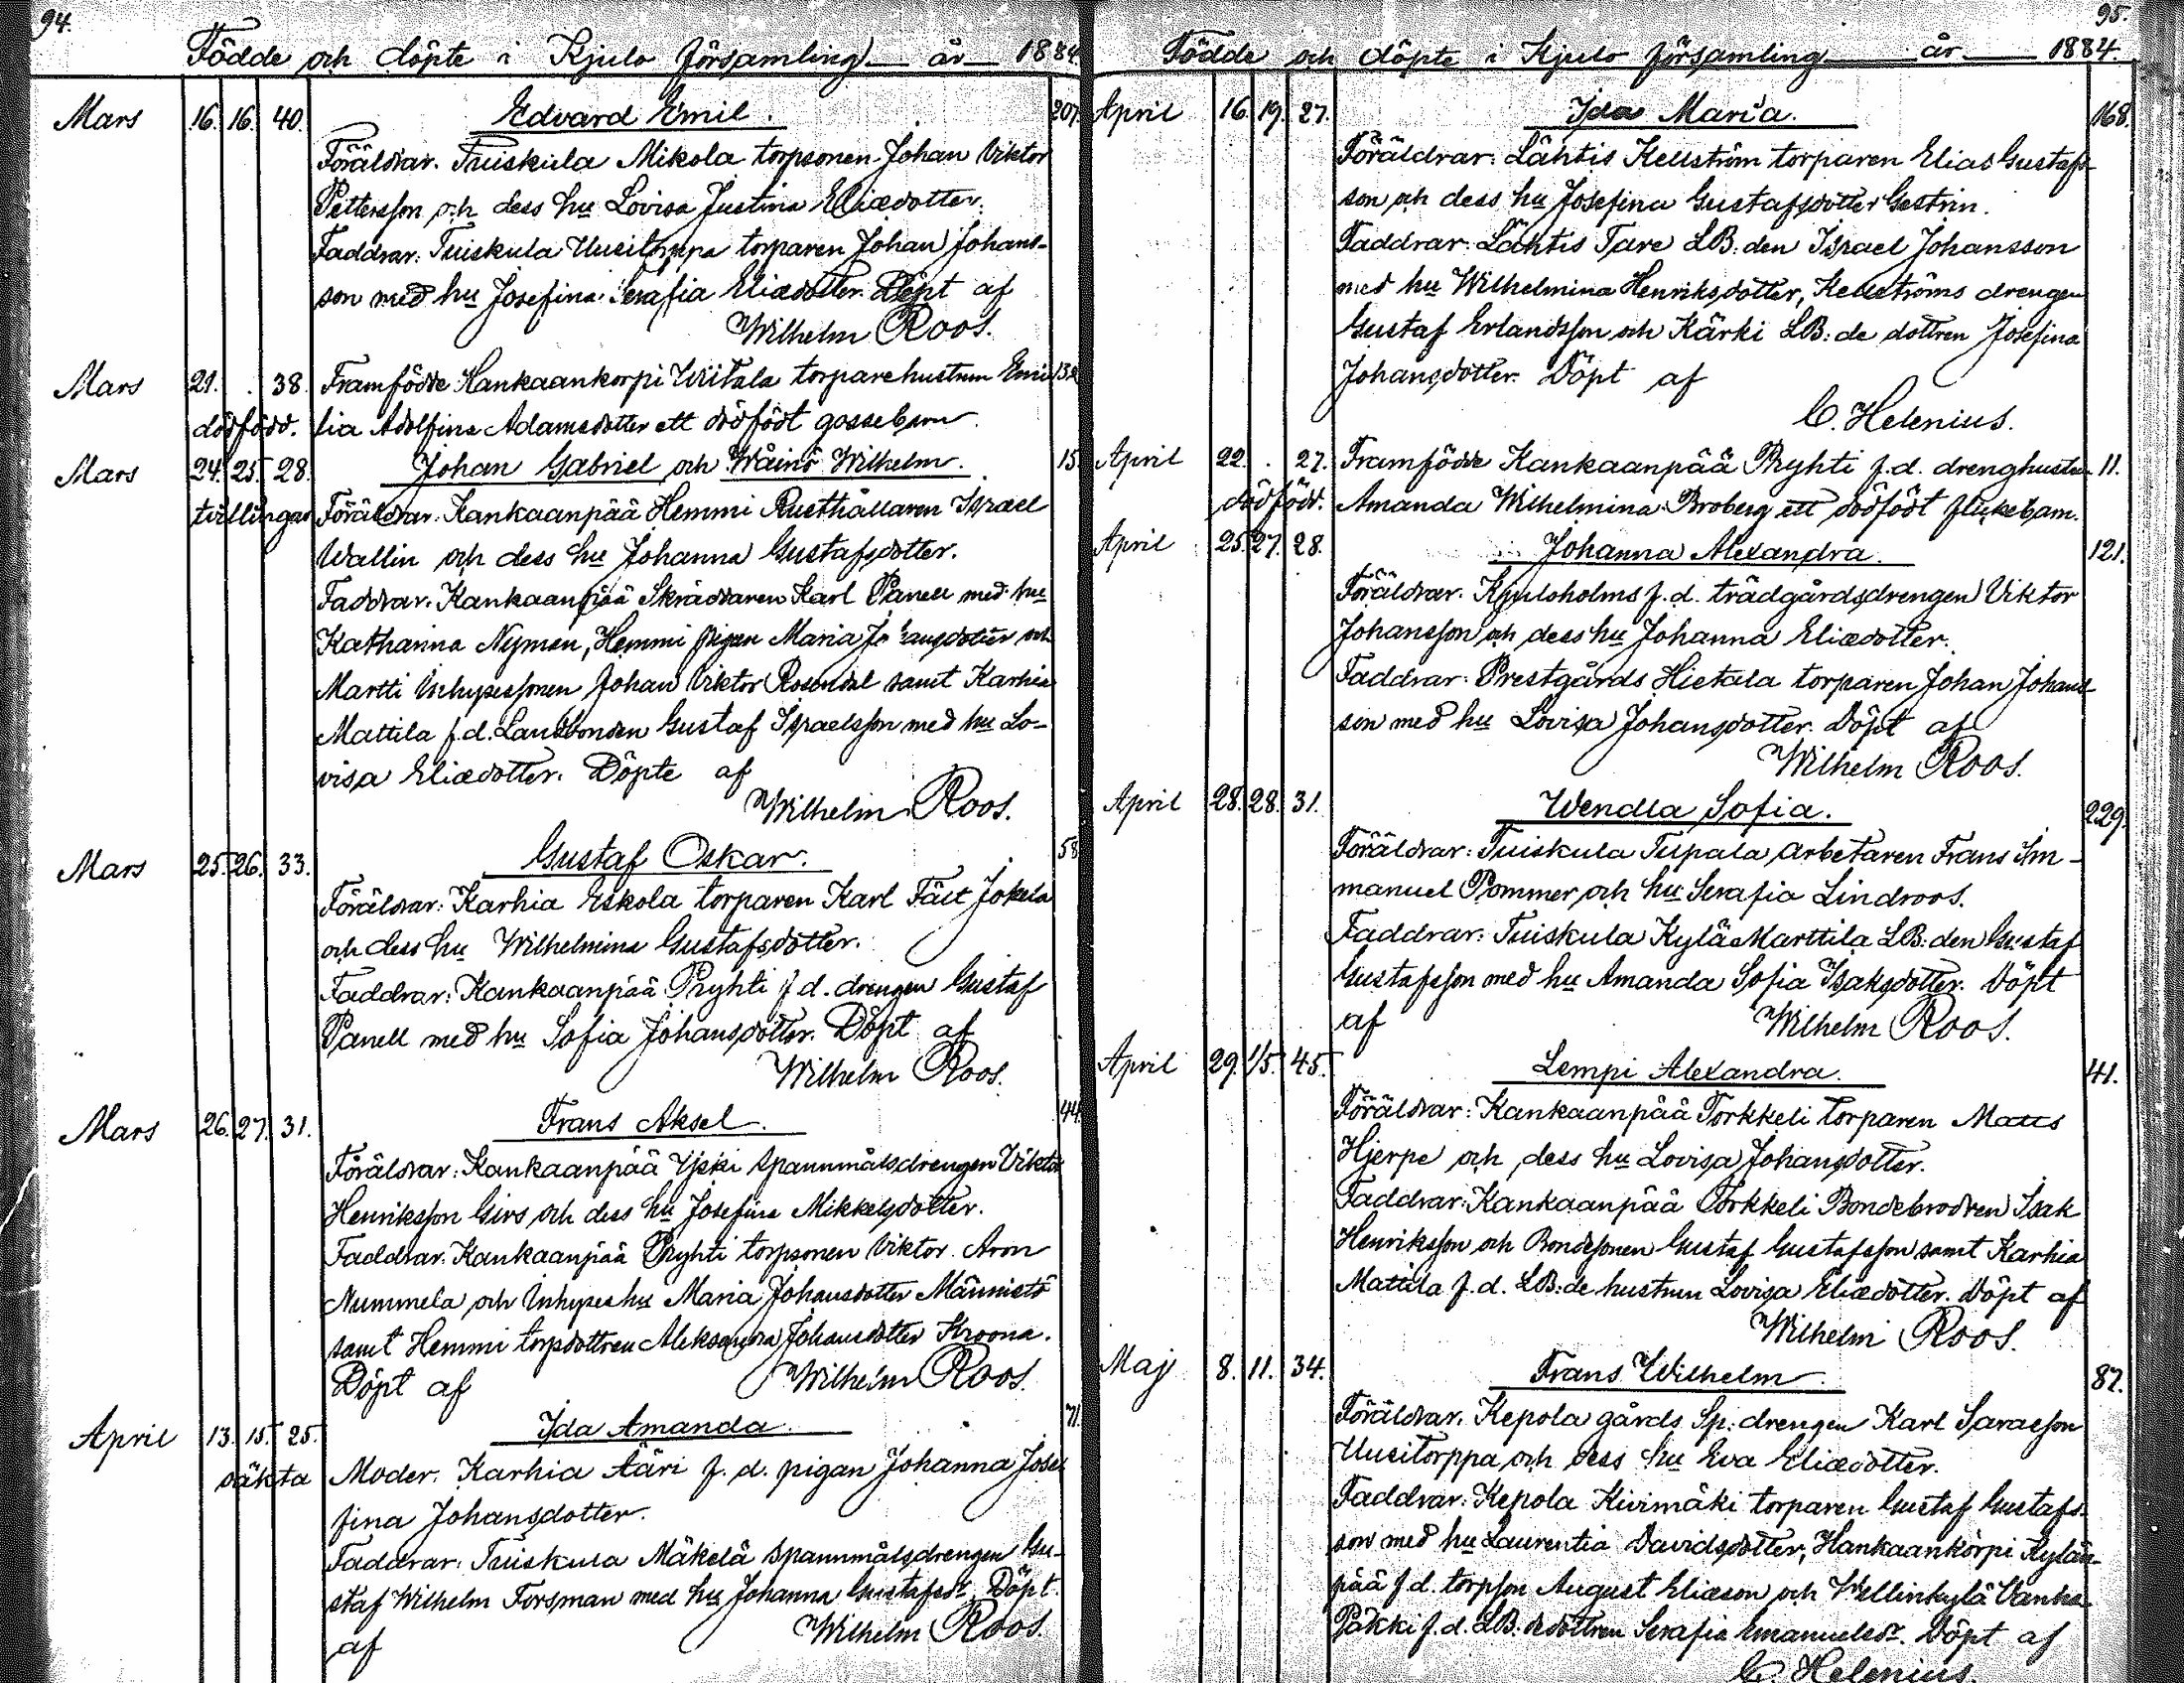 94.
Födde och döpte i Kjulo församling år 1884
Mars 16. 16. 40. Edvard Emil. 207.
Föräldrar. Tuiskula Mikola torpsonen Johan Viktor
Pettersson och dess hu Lovisa Justina Eliædotter.
Faddrar: Tuiskula Uusitorppa torparen Johan Johans-
son med hu Josefina Serafia Eliædotter. Döpt af
Wilhelm Roos.
Mars 21. . 38. Framfödde Hankaankorpi Uitala torparehustrun Emi
dödfödd. lia Adolfina Adamsdotter ett dödfödt gossebarn
Mars 24. 25. 28. Johan Gabriel och Wäinö Wilhelm. 15.
tvillingar Föräldrar. Kankaanpää Hemmi Rusthållaren Israel
Wallin och dess hu Johanna Gustafsdotter.
Faddrar. Kankaanpää Skräddaren Karl Panell med hu
Katharina Nyman, Hemmi pigan Maria Johansdotter och
Martti Inhysessonen Johan Viktor Rosendal samt Karhia
Mattila f.d. Landbonden Gustaf Israelsson med hu Lo-
visa Eliædotter. Döpte af
Wilhelm Roos.
Mars 25. 26. 33. Gustaf Oskar. 58
Föräldrar: Karhia Eskola torparen Karl Fält Jokela
och dess hu Wilhelmina Gustafsdotter.
Faddrar: Kankaanpää Pryhti f d. drengen Gustaf
Panell med hu Sofia Johansdotter. Döpt af
Wilhelm Roos.
Mars 26. 27. 31. Frans Aksel. 44
Föräldrar: Kankaanpää Yjski spannmålsdrengen Viktor
Henriksson Girs och dess hu Josefina Mikkelsdotter.
Faddrar. Kankaanpää Pryhti torpsonen Viktor Aron
Nummela och Inhyses hu Maria Johansdotter Männistö
samt Hemmi torpdottren Aleksandra Johansdotter Kroona.
Döpt af Wilhelm Roos.
April 13. 15. 25. Ida Amanda. 71.
oäkta Moder. Karhia Ääri f. d. pigan Johanna Jose
fina Johansdotter.
Faddrar: Tuiskula Mäkelä spannmålsdrengen Gu-
staf Wilhelm Forsman med hu Johanna Gustafsdr. Döpt.
af Wilhelm Roos.
95.
Födde och döpte i Kjulo församling år 1884.
April 16. 19. 27. Ida Maria. 168.
Föräldrar: Lähtis Kellström torparen Elias Gustafs-
son och dess hu Josefina Gustafsdotter Gestrin.
Faddrar: Lähtis Tare LB:den Israel Johansson
med hu Wilhelmina Henriksdotter, Kellströms drengen
Gustaf Erlandsson och Kärki LB:de dottren Josefina
Johansdotter. Döpt af
C. Helenius.
April 22. . 27. Framfödde Kankaanpää Pryhti f.d. drenghustru 11.
dödfödd. Amanda Wilhelmina Broberg ett dödfödt flickebarn.
April 25. 27. 28. Johanna Alexandra. 121.
Föräldrar. Kjuloholms f.d. trädgårdsdrengen Viktor
Johansson och dess hu Johanna Eliædotter.
Faddrar: Prestgårds Hietala torparen Johan Johans-
son med hu Lovisa Johansdotter. Döpt af
Wilhelm Roos.
April 28. 28. 31. Wendla Sofia. 229.
Föräldrar: Tuiskula Tupala arbetaren Frans Im-
manuel Pommer och hu Serafia Lindroos.
Faddrar: Tuiskula Kylä Marttila LB:den Gustaf
Gustafsson med hu Amanda Sofia Isaksdotter. Döpt
af Wilhelm Roos.
April 29. 1/5. 45. Lempi Alexandra. 41.
Föräldrar: Kankaanpää Torkkeli torparen Matts
Hjerpe och dess hu Lovisa Johansdotter.
Faddrar: Kankaanpää Torkkeli Bondebrodren Isak
Henriksson och Bondesonen Gustaf Gustafsson samt Karhia
Mattila f. d. LB:de hustrun Lovisa Eliædotter. Döpt af
Wilhelm Roos.
Maj 8. 11. 34. Frans Wilhelm. 87.
Föräldrar. Kepola gårds Sp: drengen Karl Isaraelsson
Uusitorppa och dess hu Eva Eliædotter.
Faddrar: Kepola Kivimäki torparen Gustaf Gustafs-
son med hu Laurentia Davidsdotter, Hankaankorpi Kylän-
pää f d. torpson August Eliæson och Wellinkylä Vanha
Päkki f. d. LB: dedottren Serafia Emanuelsdr. Döpt af
C. Helenius.